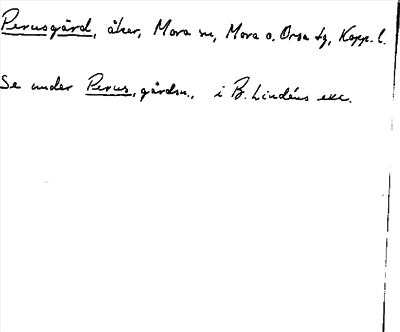 Perusgård, åker, Mora sn, Mora o. Orsa tg, Kopp. l.
Se under Perus, gårdsn., i B. Lindéns exc.